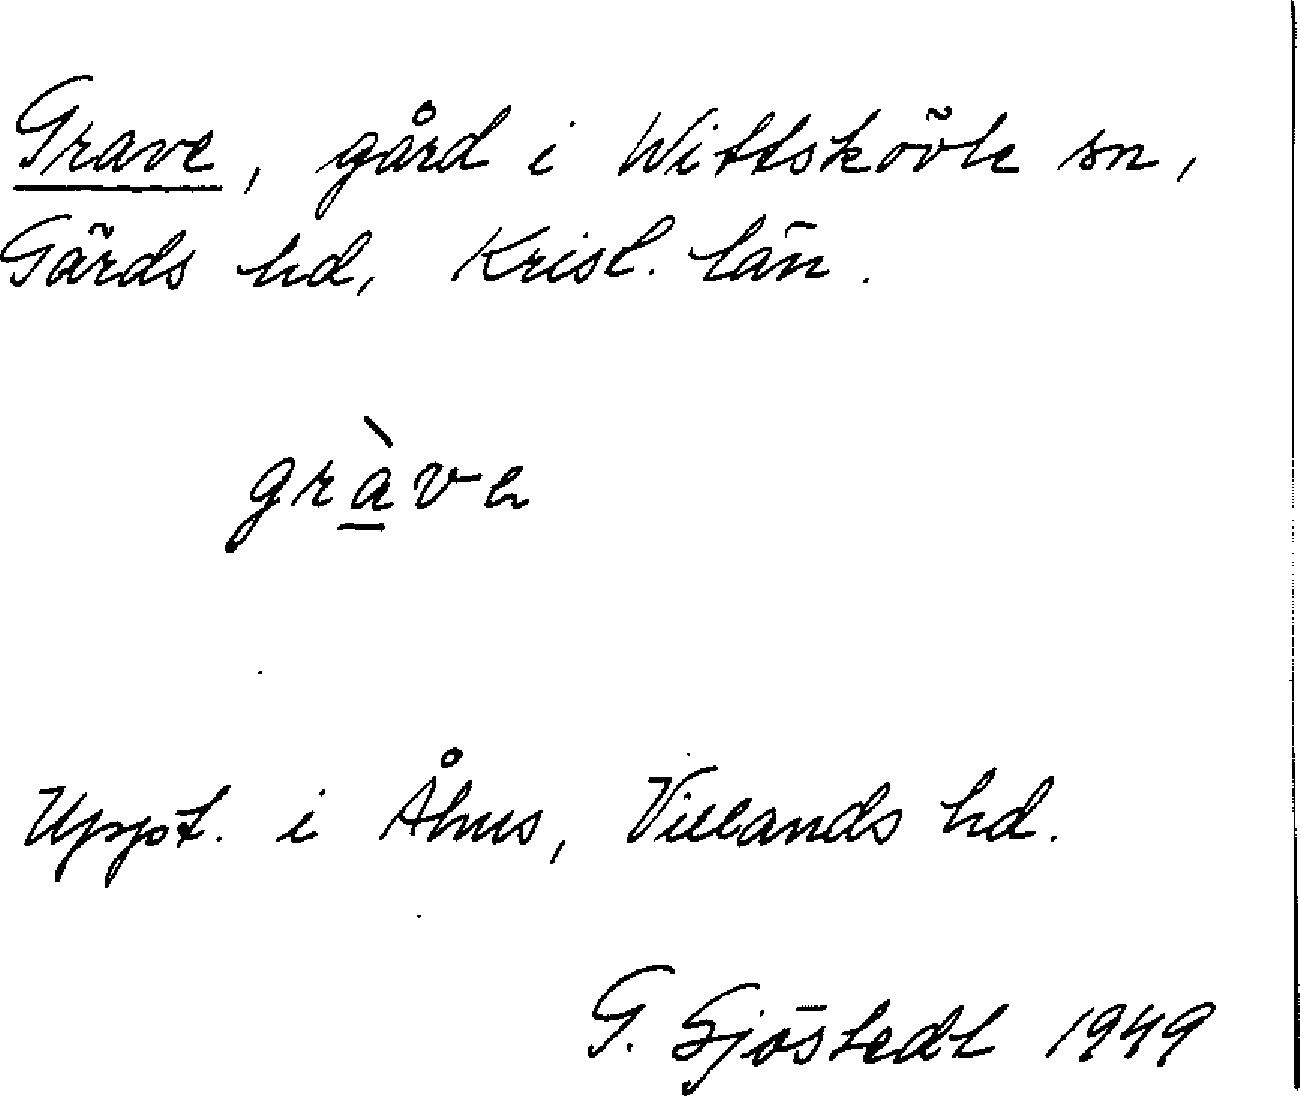 Grave, gård i Wittskövle sn,
Gärds hd, Krist. län.
gràve
Uppt. i Åhus, Villands hd.
G. Sjöstedt 1949